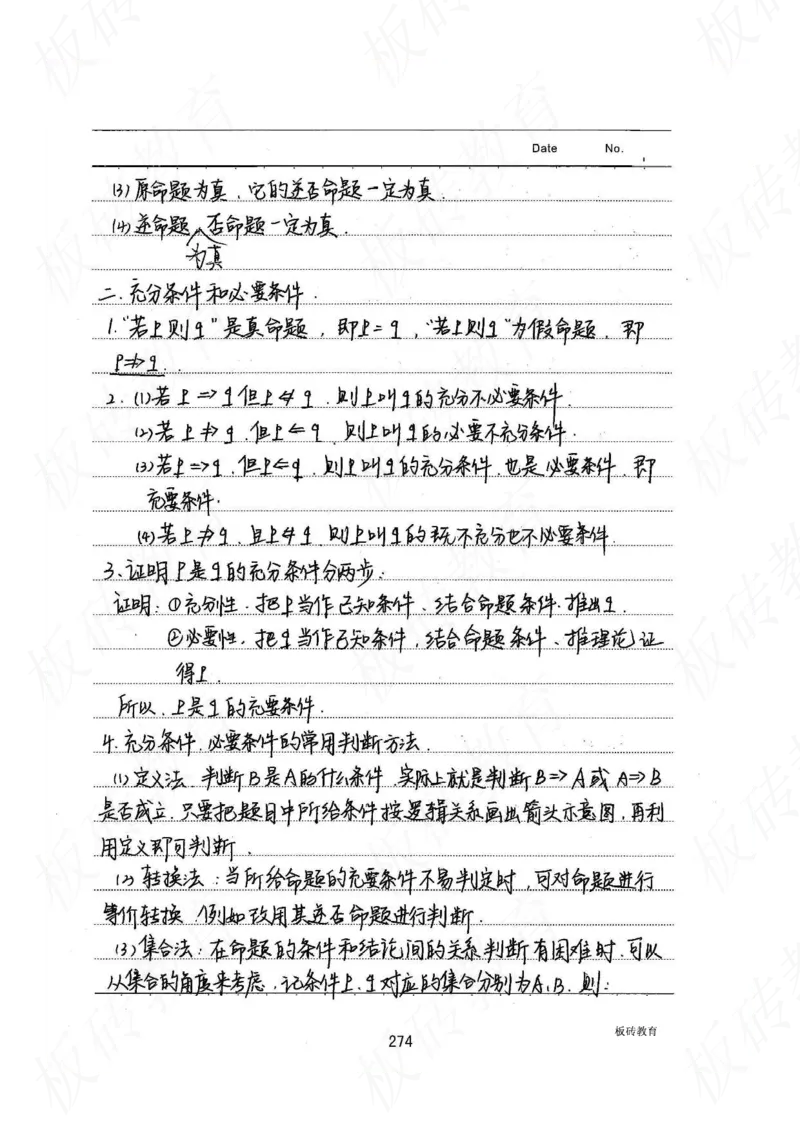 Date No.
(3) 原命题为真、它的逆否命题一定为真.
(4) 逆命题为真、否命题一定为真.
二. 充分条件和必要条件.
1. "若P则q"是真命题, 即P=q, "若P则q"为假命题, 即
P⇏q.
2. (1)若P⇒q但P⇍q, 则P叫q的充分不必要条件.
(2)若P⇏q, 但P⇐q, 则P叫q的必要不充分条件.
(3)若P=>q, 但P⇐q, 则P叫q的充分条件, 也是必要条件, 即
充要条件.
(4)若P⇏q, 且P⇍q, 则P叫q的既不充分也不必要条件.
3、证明P是q的充分条件分两步:
证明: ①充分性. 把P当作已知条件、结合命题条件. 推出q.
②必要性. 把q当作已知条件, 结合命题条件、推理论证
得P.
所以、P是q的充要条件.
4. 充分条件、必要条件的常用判断方法.
(1) 定义法. 判断B是A的什么条件, 实际上就是判断B=>A或A=>B
是否成立. 只要把题目中所给条件按逻辑关系画出箭头示意图, 再利
用定义即可判断.
(2) 转换法: 当所给命题的充要条件不易判定时, 可对命题进行
等价转换, 例如改用其逆否命题进行判断.
(3)集合法: 在命题的条件和结论间的关系判断有困难时. 可以
从集合的角度来考虑, 记条件P、q对应的集合分别为A、B. 则:
274
板砖教育